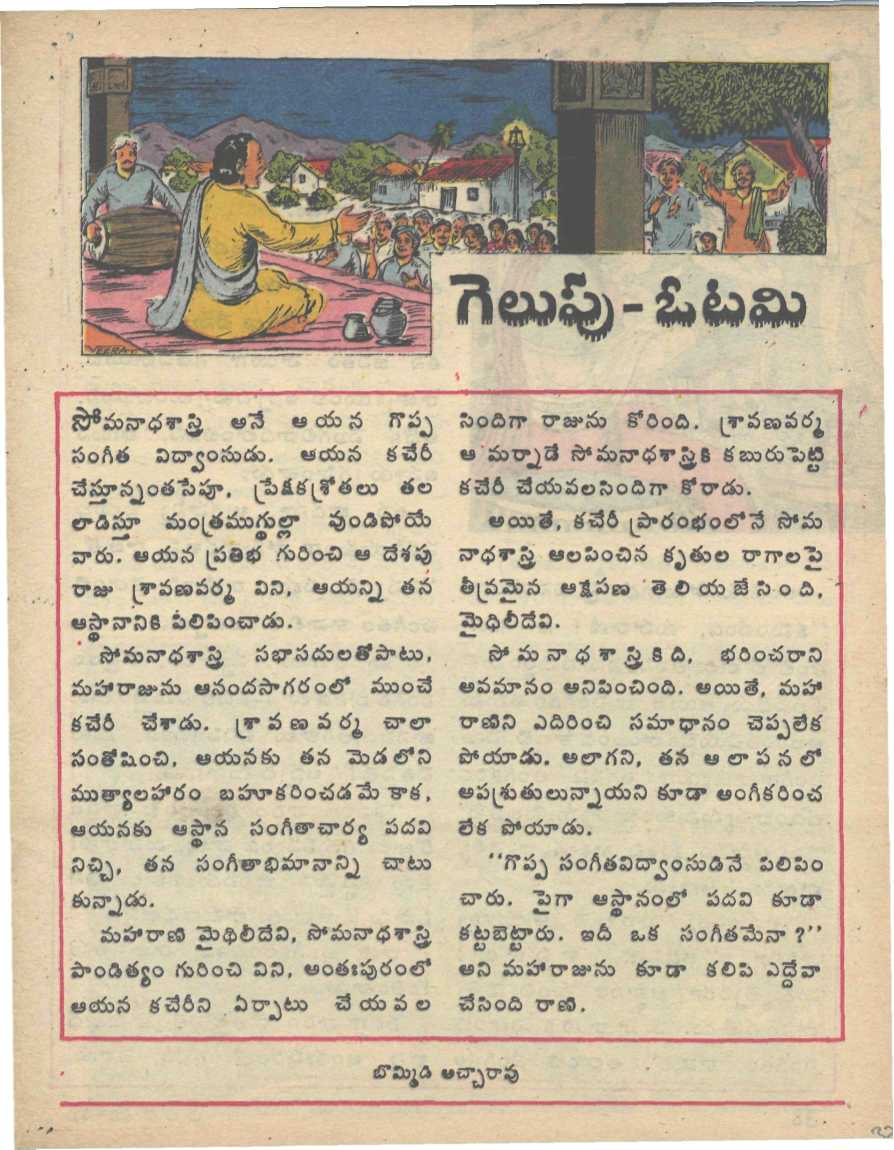 గెలుపు - ఓటమి
సోమనాధశాస్త్రి అనే ఆయన గొప్ప
సంగీత విద్వాంసుడు. ఆయన కచేరీ
చేస్తూన్నంతసేపూ, ప్రేక్షకశ్రోతలు తల
లాడిస్తూ మంత్రముగ్ధుల్లా వుండిపోయే
వారు. ఆయన ప్రతిభ గురించి ఆ దేశపు
రాజు శ్రావణవర్మ విని, ఆయన్ని తన
ఆస్థానానికి పిలిపించాడు.
సోమనాధశాస్త్రి సభాసదులతోపాటు,
మహారాజును ఆనందసాగరంలో ముంచే
కచేరీ చేశాడు. శ్రావణవర్మ చాలా
సంతోషించి, ఆయనకు తన మెడలోని
ముత్యాలహారం బహూకరించడమే కాక,
ఆయనకు ఆస్థాన సంగీతాచార్య పదవి
నిచ్చి, తన సంగీతాభిమానాన్ని చాటు
కున్నాడు.
మహారాణి మైథిలీదేవి, సోమనాధశాస్త్రి
పాండిత్యం గురించి విని, అంతఃపురంలో
ఆయన కచేరీని ఏర్పాటు చేయవల
సిందిగా రాజును కోరింది. శ్రావణవర్మ
ఆ మర్నాడే సోమనాధశాస్త్రికి కబురుపెట్టి
కచేరీ చేయవలసిందిగా కోరాడు.
అయితే, కచేరీ ప్రారంభంలోనే సోమ
నాధశాస్త్రి ఆలపించిన కృతుల రాగాలపై
తీవ్రమైన ఆక్షేపణ తెలియజేసింది,
మైథిలీదేవి.
సోమనాధశాస్త్రికిది, భరించరాని
అవమానం అనిపించింది. అయితే, మహా
రాణిని ఎదిరించి సమాధానం చెప్పలేక
పోయాడు. అలాగని, తన ఆలాపనలో
అపశ్రుతులున్నాయని కూడా అంగీకరించ
లేక పోయాడు.
‘‘గొప్ప సంగీతవిద్వాంసుడినే పిలిపిం
చారు. పైగా ఆస్థానంలో పదవి కూడా
కట్టబెట్టారు. ఇదీ ఒక సంగీతమేనా ?’’
అని మహారాజును కూడా కలిపి ఎద్దేవా
చేసింది రాణి.
బొమ్మిడి అచ్చారావు